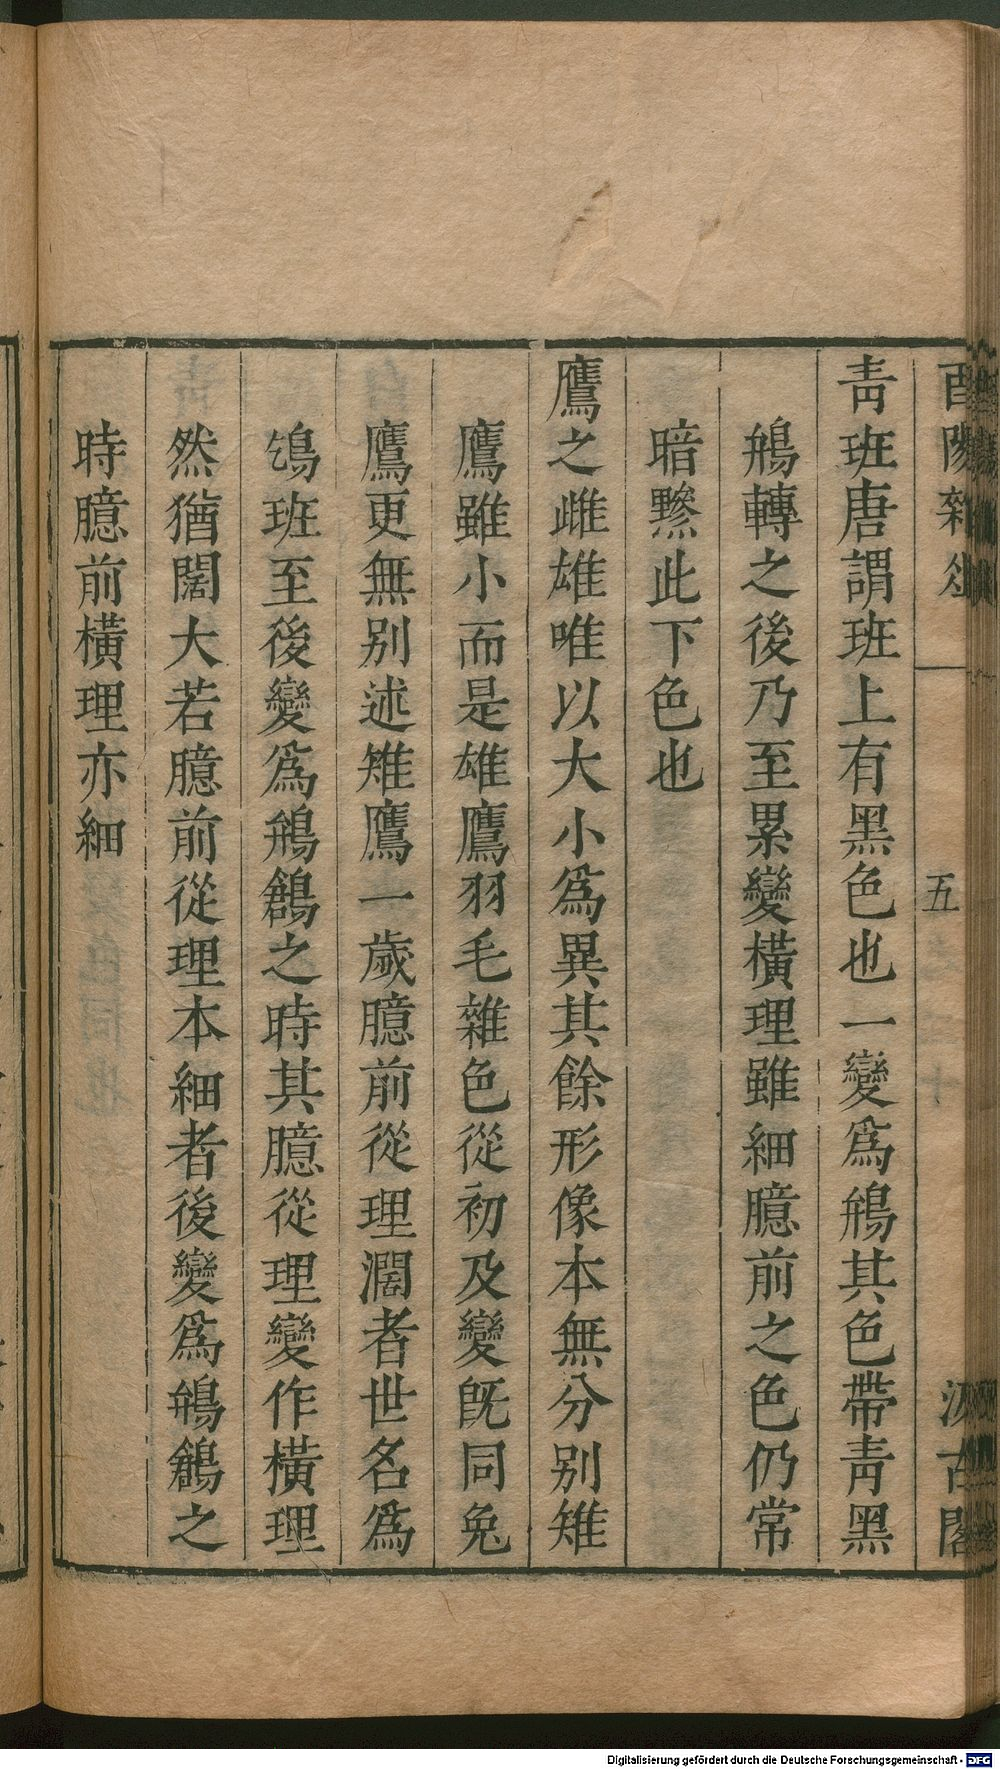 酉陽雜俎
五
汲古閣
青班唐謂班上有黑色也一變爲鴘其色帶青黑
鴘轉之後乃至累變橫理雖細臆前之色仍常
暗黲此下色也
鷹之雌雄唯以大小爲異其餘形像本無分别雉
鷹雖小而是雄鷹羽毛雜色從初及變既同兔
鷹更無别述雉鷹一歲臆前從理濶者世名爲
鴾班至後變爲鴘鶬之時其臆從理變作橫理
然猶闊大若臆前從理本細者後變爲鴘鶬之
時臆前橫理亦細
Digitalisierung gefördert durch die Deutsche Forschungsgemeinschaft - DFG